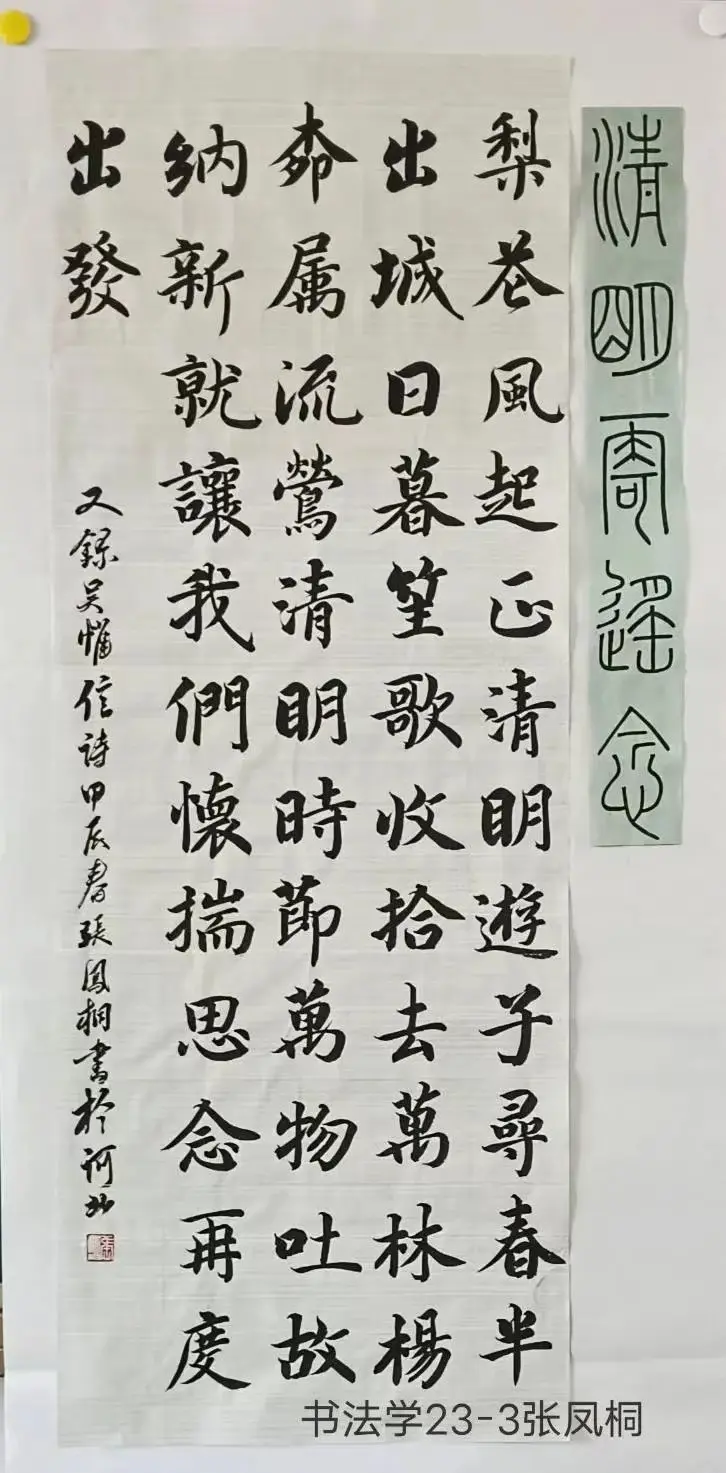 清明寄遙念
梨花風起正清明遊子尋春半
出城日暮笙歌收拾去萬株楊
柳属流鶯清明時節萬物吐故
納新就讓我們懷揣思念再度
出發
又錄吴惟信詩甲辰春張鳳桐書於河北
书法学23-3张凤桐